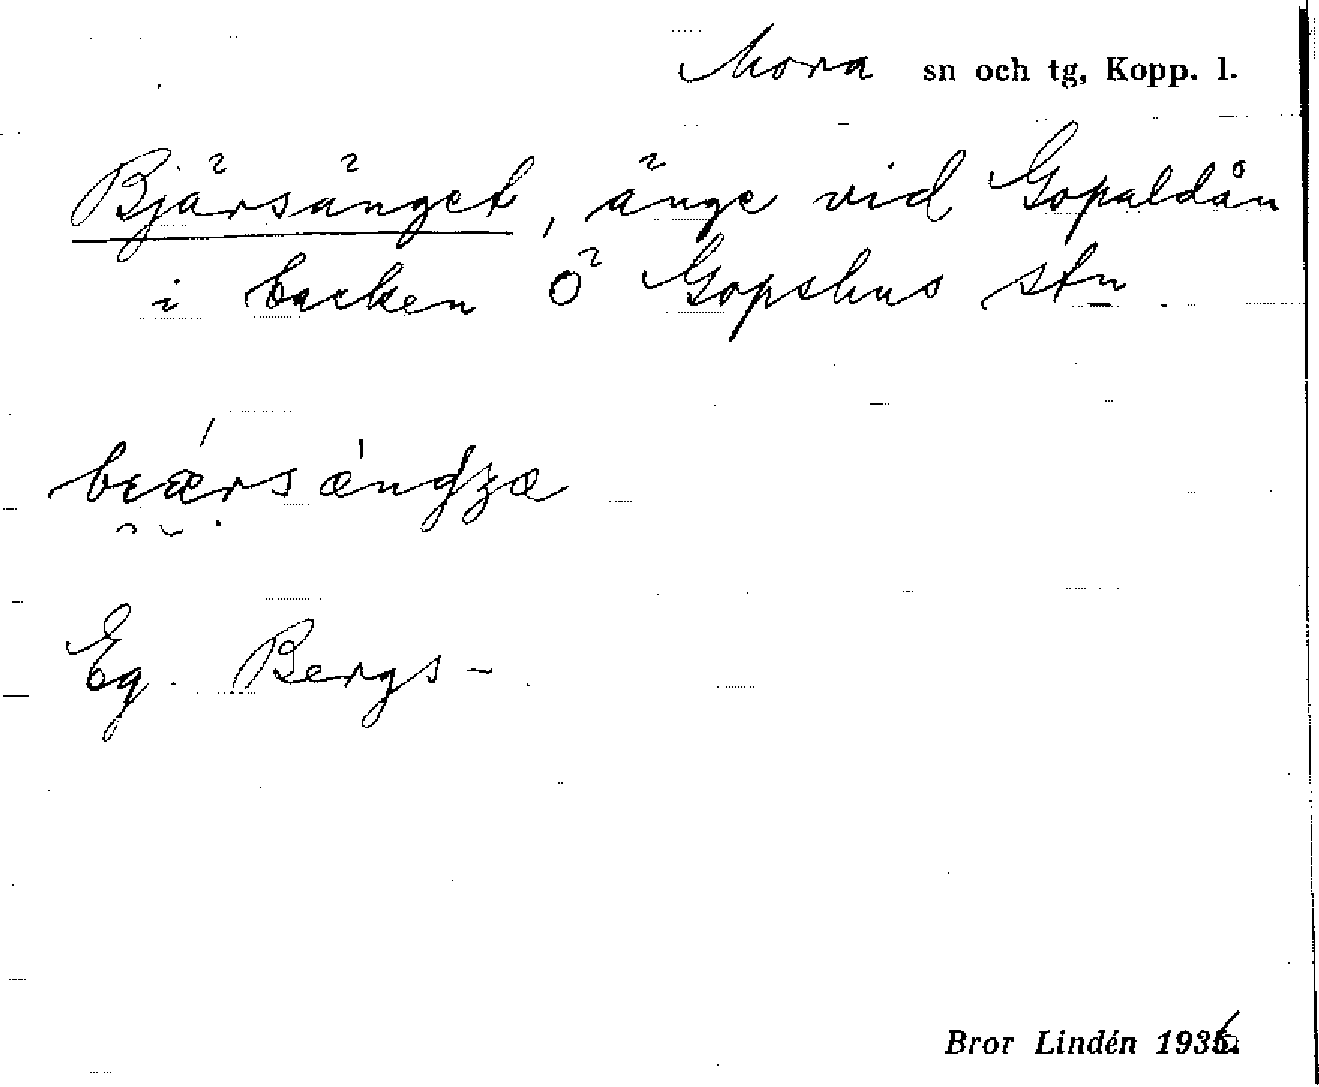 Mora sn och tg, Kopp. l.
Bjärsänget, änge vid Gopaldån
i backen Ö Gopshus stn
Eg. Bergs-
Bror Lindén 1936.